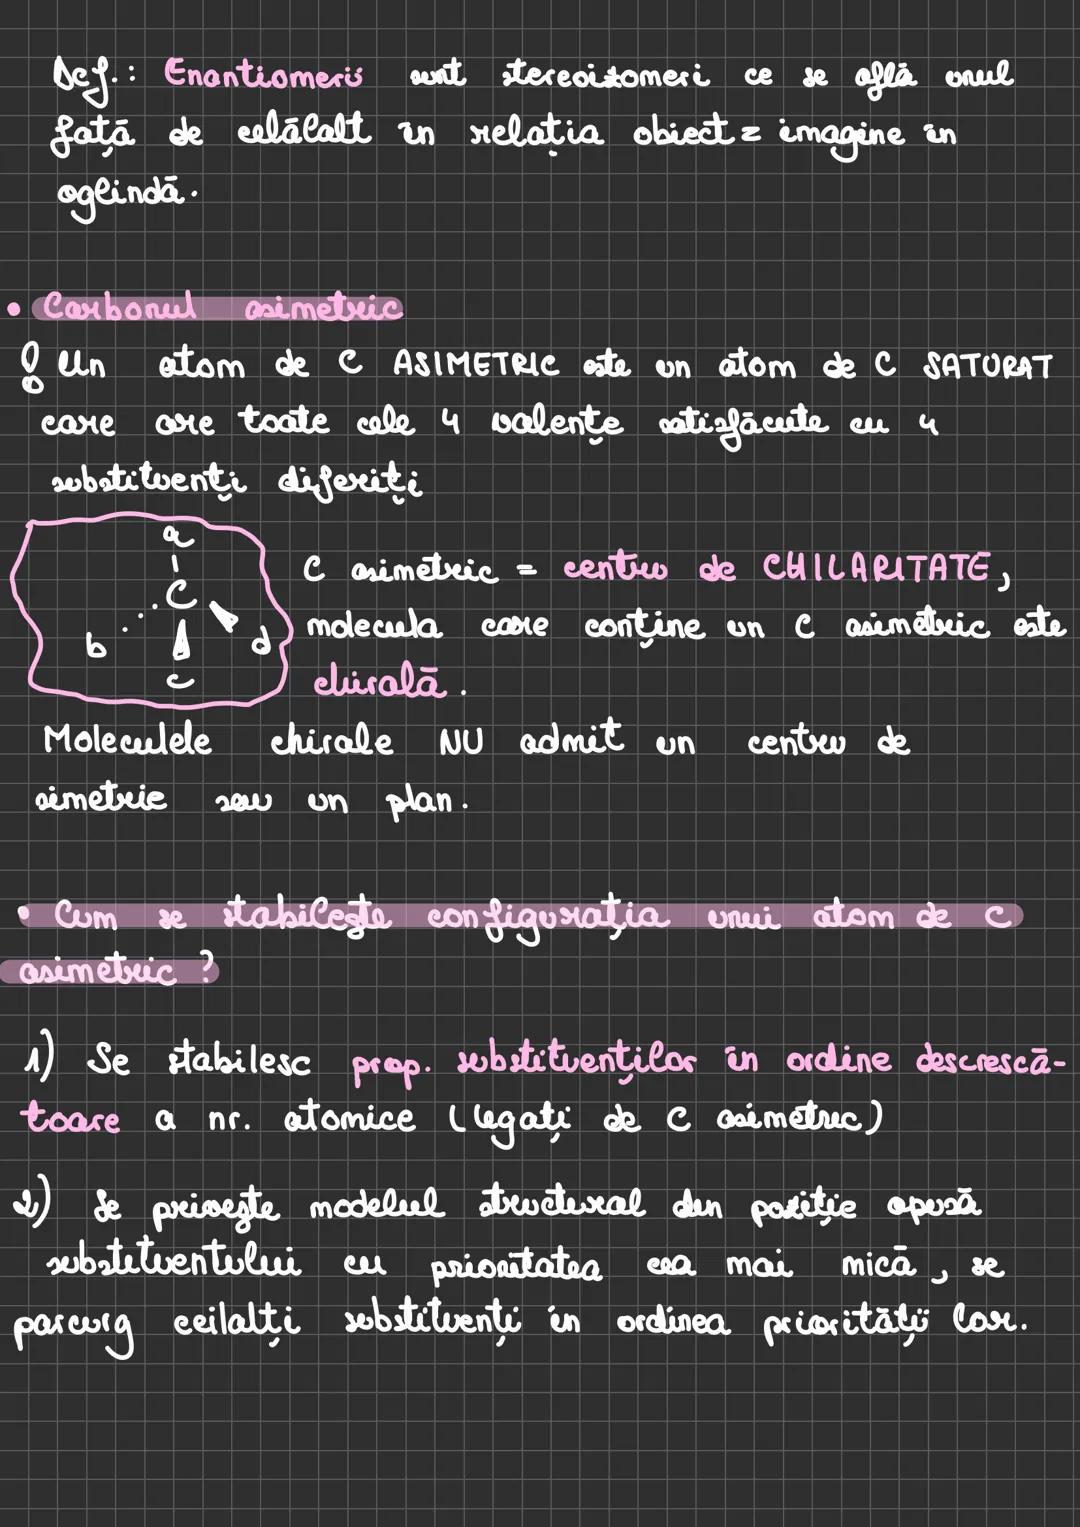 Def.: Enantiomerii sunt stereoizomeri ce se află unul
față de celălalt în relația obiect = imagine în
oglindă.
• Carbonul asimetric
! Un atom de C ASIMETRIC este un atom de C SATURAT
care are toate cele 4 valențe satisfăcute cu 4
substituenți diferiți
a
C
b
d
c
C asimetric = centru de CHILARITATE,
molecula care conține un C asimetric este
chirală.
Moleculele chirale NU admit un centru de
simetrie sau un plan.
• Cum se stabilește configurația unui atom de C
asimetric?
1) Se stabilesc prop. substituenților în ordine descrescă-
toare a nr. atomice (legați de C asimetric)
2) Se privește modelul structural din poziție opusă
substituentului cu prioritatea cea mai mică, se
parcurg ceilalți substituenți în ordinea priorității lor.